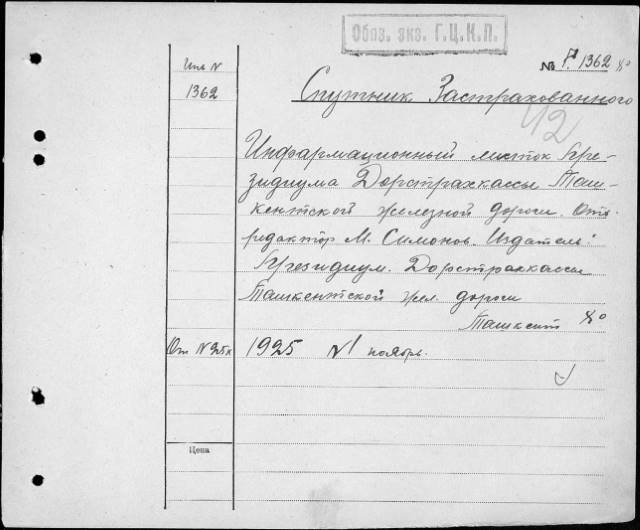 Обяз. экз. Г.Ц.К.П.
Инв N
1362
№ Г. 1362 8°
Спутник Застрахованного
42
Информационный листок Пре-
зидиума Дорстрахкассы Таш-
кентской железной дороги. Отв.
редактор М. Симонов. Издатель:
Президиум. Дорстрахкассы
Ташкентской жел. дороги
Ташкент 8°
От N 25к
1925 N1 ноябрь.
Цена